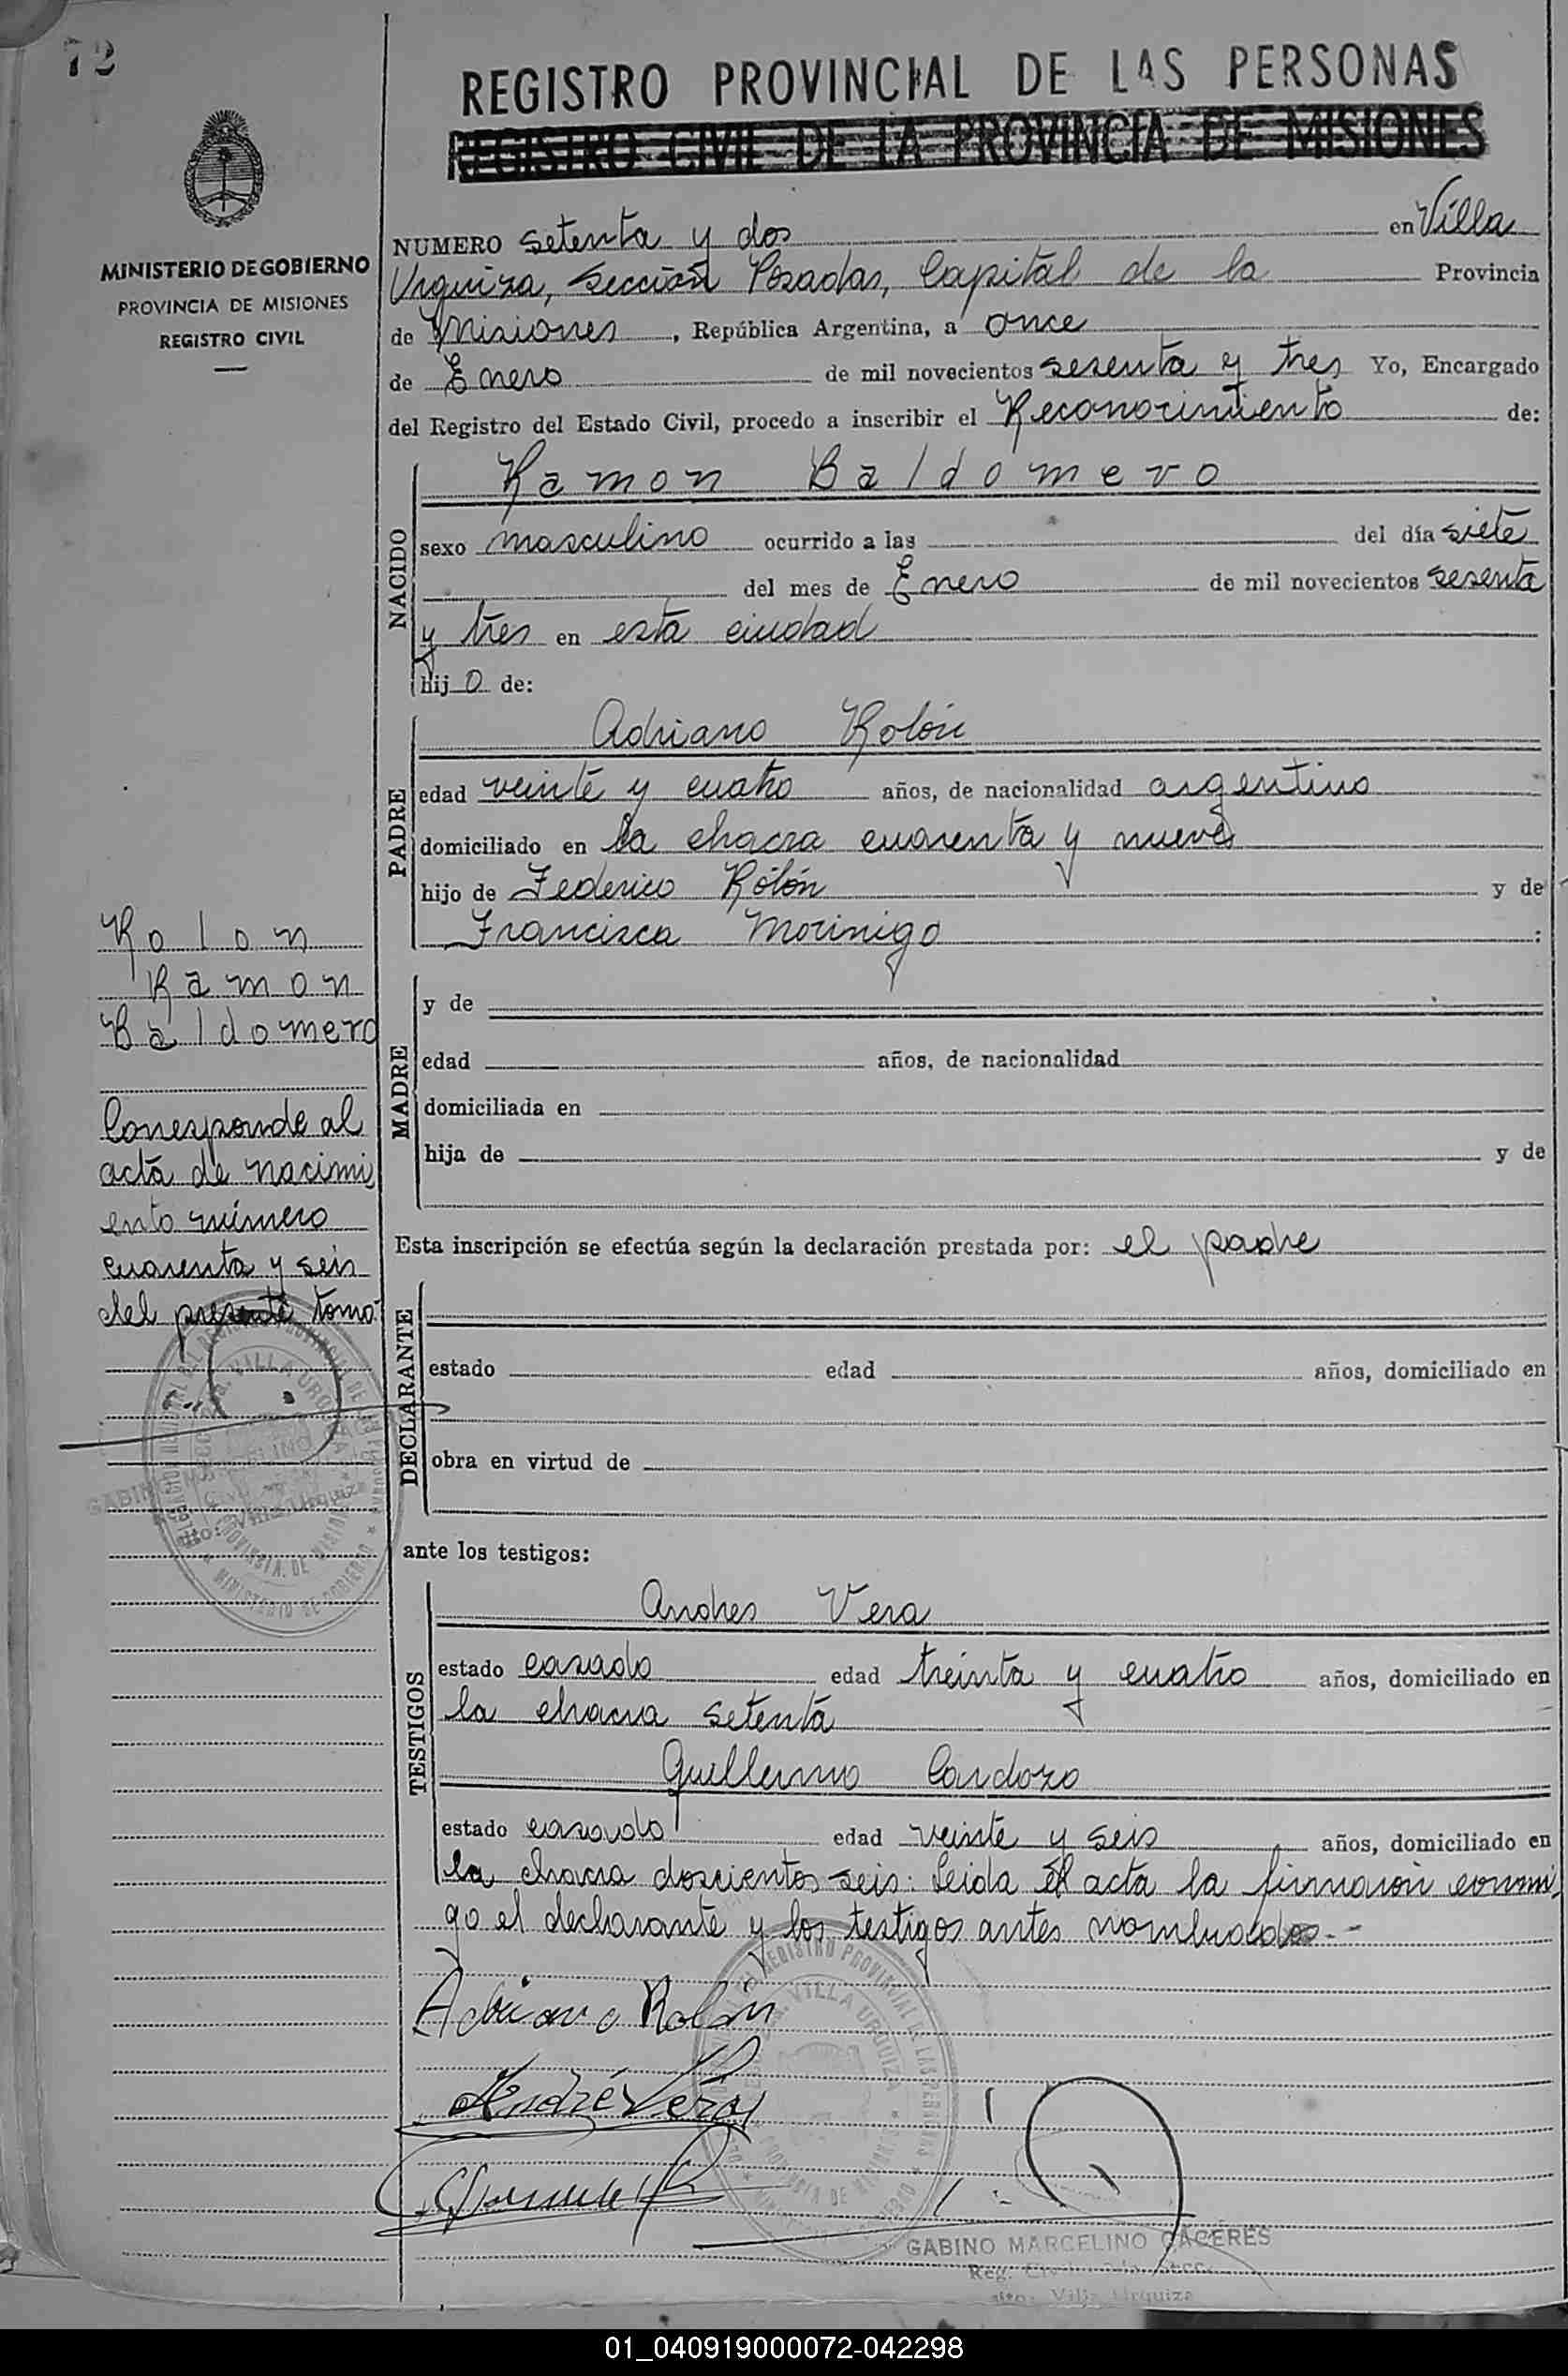 72
REGISTRO PROVINCIAL DE LAS PERSONAS
REGISTRO CIVIL DE LA PROVINCIA DE MISIONES
MINISTERIO DE GOBIERNO
PROVINCIA DE MISIONES
REGISTRO CIVIL
NUMERO setenta y dos en Villa
Urquiza, Sección Posadas, Capital de la Provincia
de Misiones, República Argentina, a once
de Enero de mil novecientos sesenta y tres Yo, Encargado
del Registro del Estado Civil, procedo a inscribir el Reconocimiento de:
NACIDO
Ramon Baldomero
sexo masculino ocurrido a las del día siete
del mes de Enero de mil novecientos sesenta
y tres en esta ciudad
hijo de:
PADRE
Adriano Rolón
edad veinte y cuatro años, de nacionalidad argentino
domiciliado en la chacra cuarenta y nueve
hijo de Federico Rolón y de
Francisca Morinigo :
MADRE
y de
edad años, de nacionalidad
domiciliada en
hija de y de
Esta inscripción se efectúa según la declaración prestada por: el padre
DECLARANTE
estado edad años, domiciliado en
obra en virtud de
ante los testigos:
TESTIGOS
Andres Vera
estado casado edad treinta y cuatro años, domiciliado en
la chacra setenta
Guillermo Cardozo
estado casado edad veinte y seis años, domiciliado en
la chacra doscientos seis. Leida el acta la firmaron conmi
go el declarante y los testigos antes nombrados.-
Rolon
Ramon
Baldomero
Corresponde al
acta de nacimi
ento número
cuarenta y seis
del presente tomo.
Adriano Rolón
André Vera
VILLA URQUIZA
GABINO MARCELINO CACERES
Villa Urquiza
01_040919000072-042298